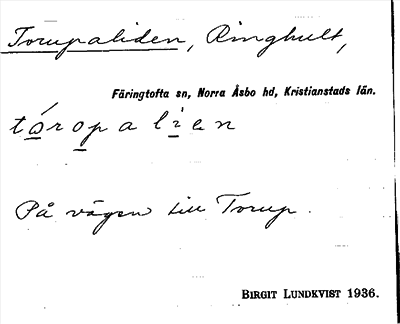 Torupaliden, Ringhult,
Färingtofta sn, Norra Åsbo hd, Kristianstads län.
tóropalien
På vägen till Torup.
BIRGIT LUNDKVIST 1936.